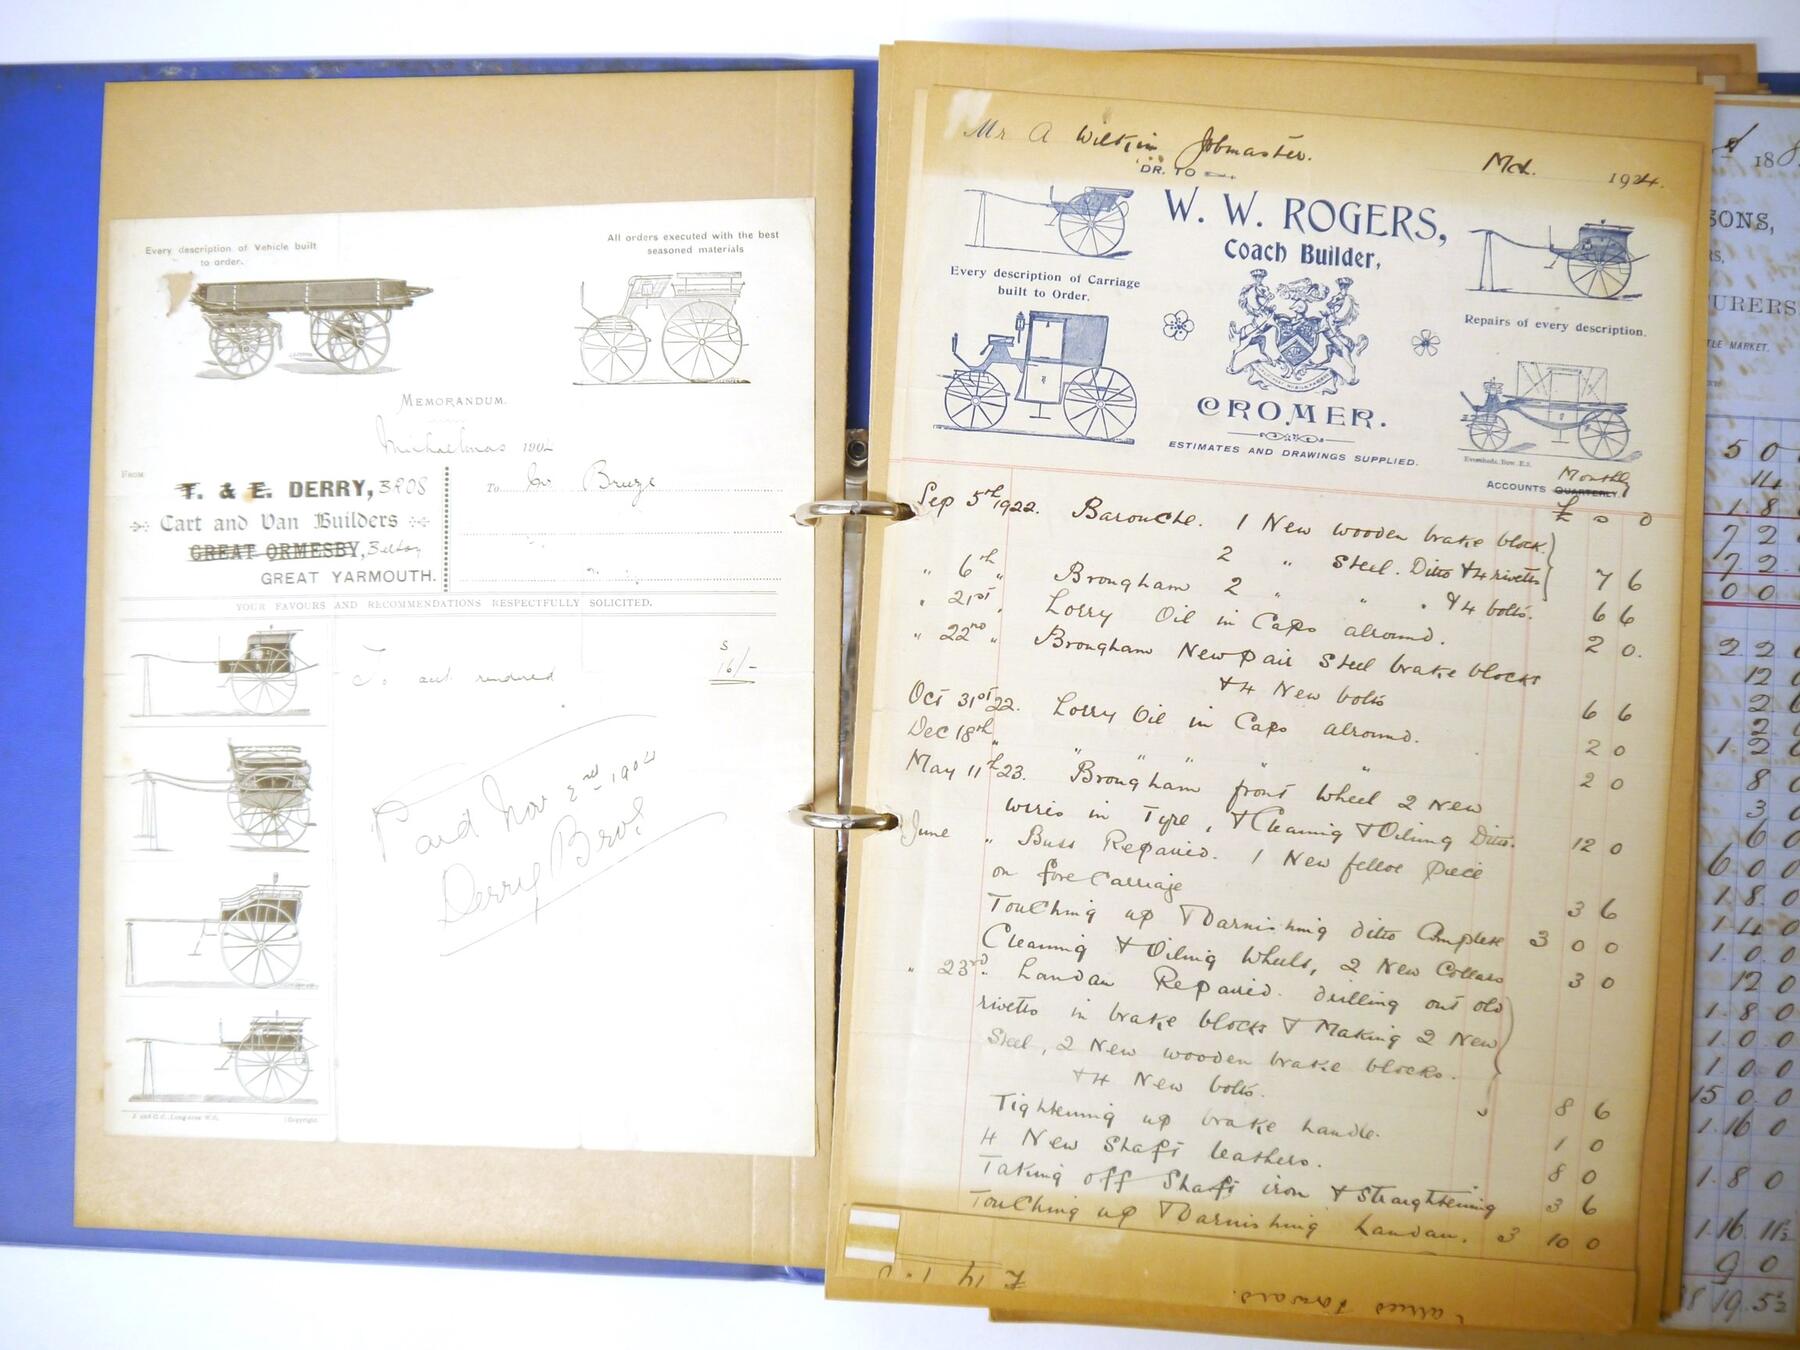 Every description of Vehicle built
to order.
All orders executed with the best
seasoned materials
MEMORANDUM.
Michaelmas 1904
FROM
T. & E. DERRY, BROS
Cart and Van Builders
GREAT ORMESBY, Belton
GREAT YARMOUTH.
To Mr
YOUR FAVOURS AND RECOMMENDATIONS RESPECTFULLY SOLICITED.
s
To act rendered 16/-
Paid Nov 2nd 1904
Derry Bros
Copyright
Mr A Wilkin Jobmaster. 1924.
DR. TO
W. W. ROGERS,
Coach Builder,
Every description of Carriage
built to Order.
Repairs of every description.
CROMER.
ESTIMATES AND DRAWINGS SUPPLIED.
Monthly
ACCOUNTS QUARTERLY.
£ s d
Sep 5th 1922. Barouche. 1 New wooden brake block.
2 " Steel. Ditto & 4 rivetts 7 6
" 6th " Brougham 2 " " " & 4 bolts. 6 6
" 21st " Lorry Oil in Caps alround. 2 0.
" 22nd " Brougham New pair Steel brake blocks
& 4 New bolts 6 6
Oct 31st 22. Lorry Oil in Caps alround. 2 0
Dec 18th " " " " " " 2 0
May 11th 23. Brougham front Wheel 2 New
wires in Tyre, & Cleaning & Oiling Ditto. 12 0
June " Buss Repaired. 1 New felloe piece
on fore Carriage 3 6
Touching up & Varnishing ditto Complete 3 0 0
Cleaning & Oiling Wheels, 2 New Collars 3 0
" 23rd " Landau Repaired. drilling out old
rivetts in brake blocks & Making 2 New
Steel, 2 New wooden brake blocks.
& 4 New bolts. 8 6
Tightening up brake handle. 1 0
4 New Shaft leathers. 8 0
Taking off Shaft iron & Straightening 3 6
Touching up & Varnishing Landau. 3 10 0
£ 14 1 0
forward.
18
SONS,
URERS